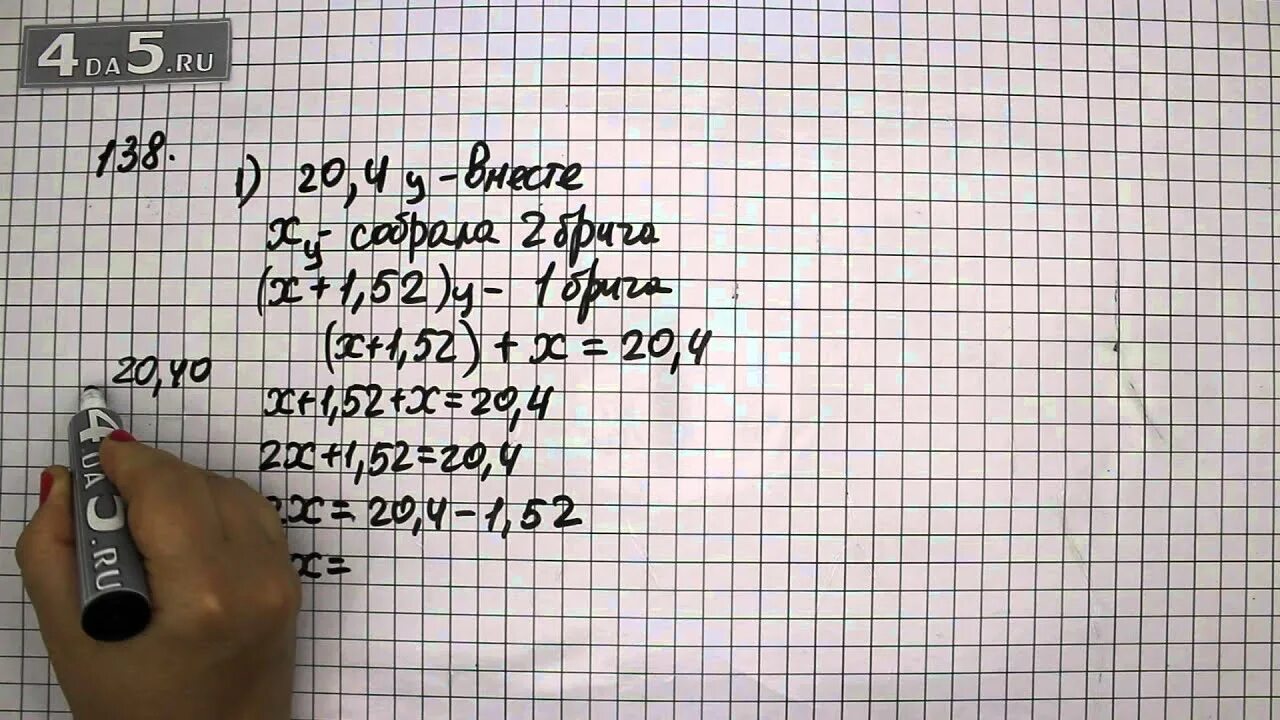 4DA5.RU
138.
1) 20,4 ц - Вместе
x ц - собрала 2 брига
(x + 1,52) ц - 1 брига
(x+1,52) + x = 20,4
20,40
x+1,52+x=20,4
2x+1,52=20,4
2x = 20,4 - 1,52
x =
4DA5.RU